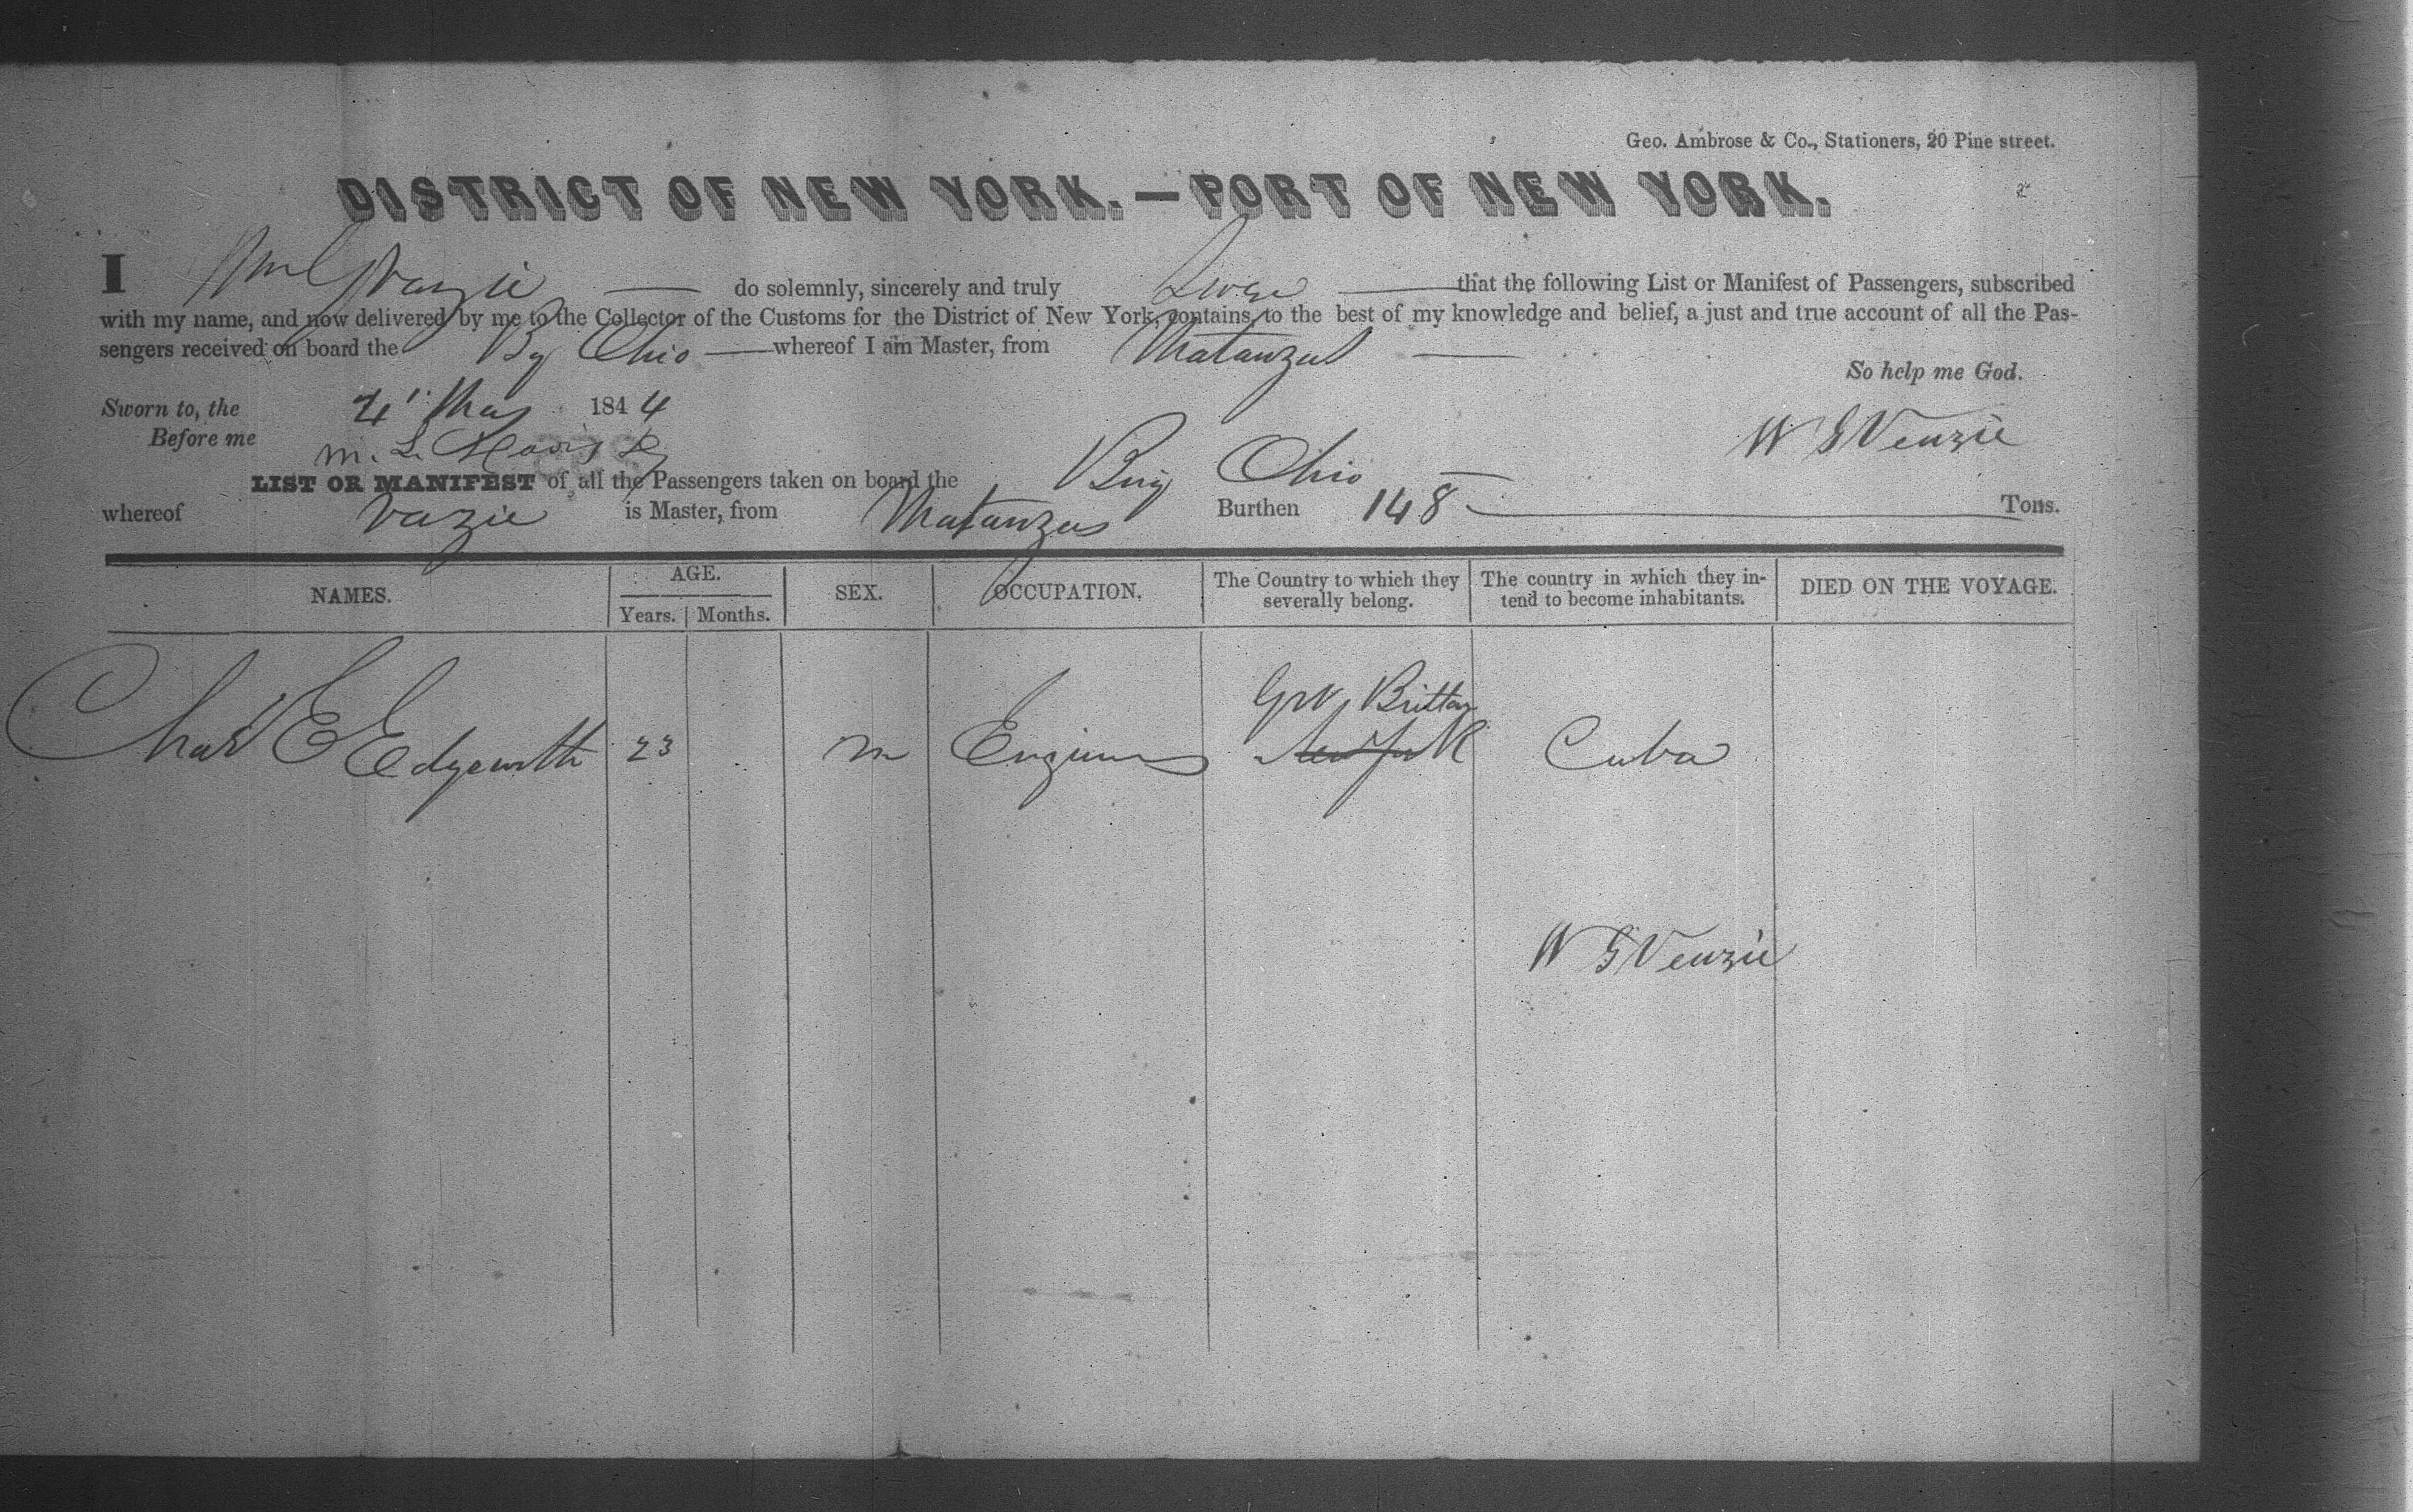 Geo. Ambrose & Co., Stationers, 20 Pine street.
DISTRICT OF NEW YORK.—PORT OF NEW YORK.
I Wm G Vazie — do solemnly, sincerely and truly Swear — that the following List or Manifest of Passengers, subscribed
with my name, and now delivered by me to the Collector of the Customs for the District of New York, contains, to the best of my knowledge and belief, a just and true account of all the Pas-
sengers received on board the Bg Ohio — whereof I am Master, from Matanzas —
So help me God.
Sworn to, the 4 May 1844
Before me
W G Veuzie
LIST OR MANIFEST of all the Passengers taken on board the Brig Ohio
whereof Vazie is Master, from Matanzas Burthen 148 Tons.
NAMES. AGE. SEX. OCCUPATION. The Country to which they severally belong. The country in which they in-tend to become inhabitants. DIED ON THE VOYAGE.
Years. Months.
Gr Brittan
Chas E Edgeworth 23 m Engineer New York Cuba
W G Veuzie